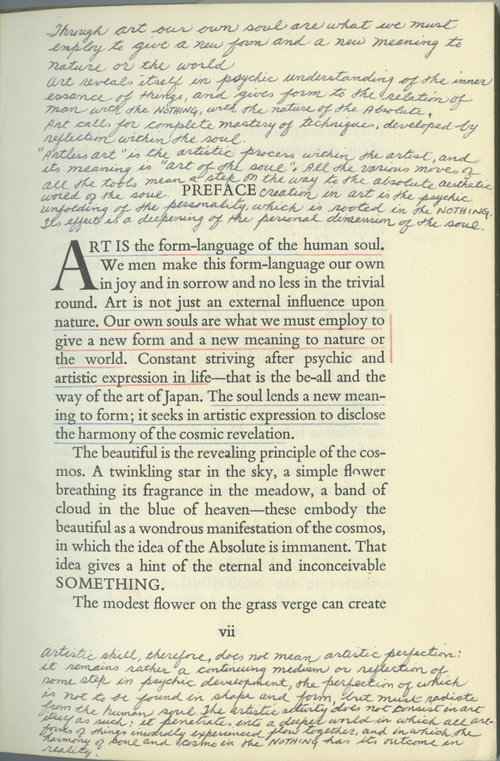 Through art our own soul are what we must
employ to give a new form and a new meaning to
nature or the world
Art reveals itself in psychic understanding of the inner
essence of things, and gives form to the relation of
man with the NOTHING, with the nature of the Absolute.
Art call for complete mastery of techniques, developed by
reflection within the soul.
"Artless art" is the artistic process within the artist, and
its meaning is "art of the soul". All the various moves of
all the tools mean a step on the way to the absolute aesthetic
world of the soul.
PREFACE
Creation in art is the psychic
unfolding of the personality, which is rooted in the NOTHING.
Its effect is a deepening of the personal dimension of the soul.
ART IS the form-language of the human soul.
We men make this form-language our own
in joy and in sorrow and no less in the trivial
round. Art is not just an external influence upon
nature. Our own souls are what we must employ to
give a new form and a new meaning to nature or
the world. Constant striving after psychic and
artistic expression in life—that is the be-all and the
way of the art of Japan. The soul lends a new mean-
ing to form; it seeks in artistic expression to disclose
the harmony of the cosmic revelation.
The beautiful is the revealing principle of the cos-
mos. A twinkling star in the sky, a simple flower
breathing its fragrance in the meadow, a band of
cloud in the blue of heaven—these embody the
beautiful as a wondrous manifestation of the cosmos,
in which the idea of the Absolute is immanent. That
idea gives a hint of the eternal and inconceivable
SOMETHING.
The modest flower on the grass verge can create
vii
Artistic skill, therefore, does not mean artistic perfection:
it remains rather a continuing medium or reflection of
some step in psychic development, the perfection of which
is not to be found in shape and form, but must radiate
from the human soul. The artistic activity does not consist in art
itself as such: it penetrates into a deeper world in which all are
forms of things inwardly experienced flow together, and in which the
harmony of soul and cosmo in the NOTHING has its outcome in
reality.